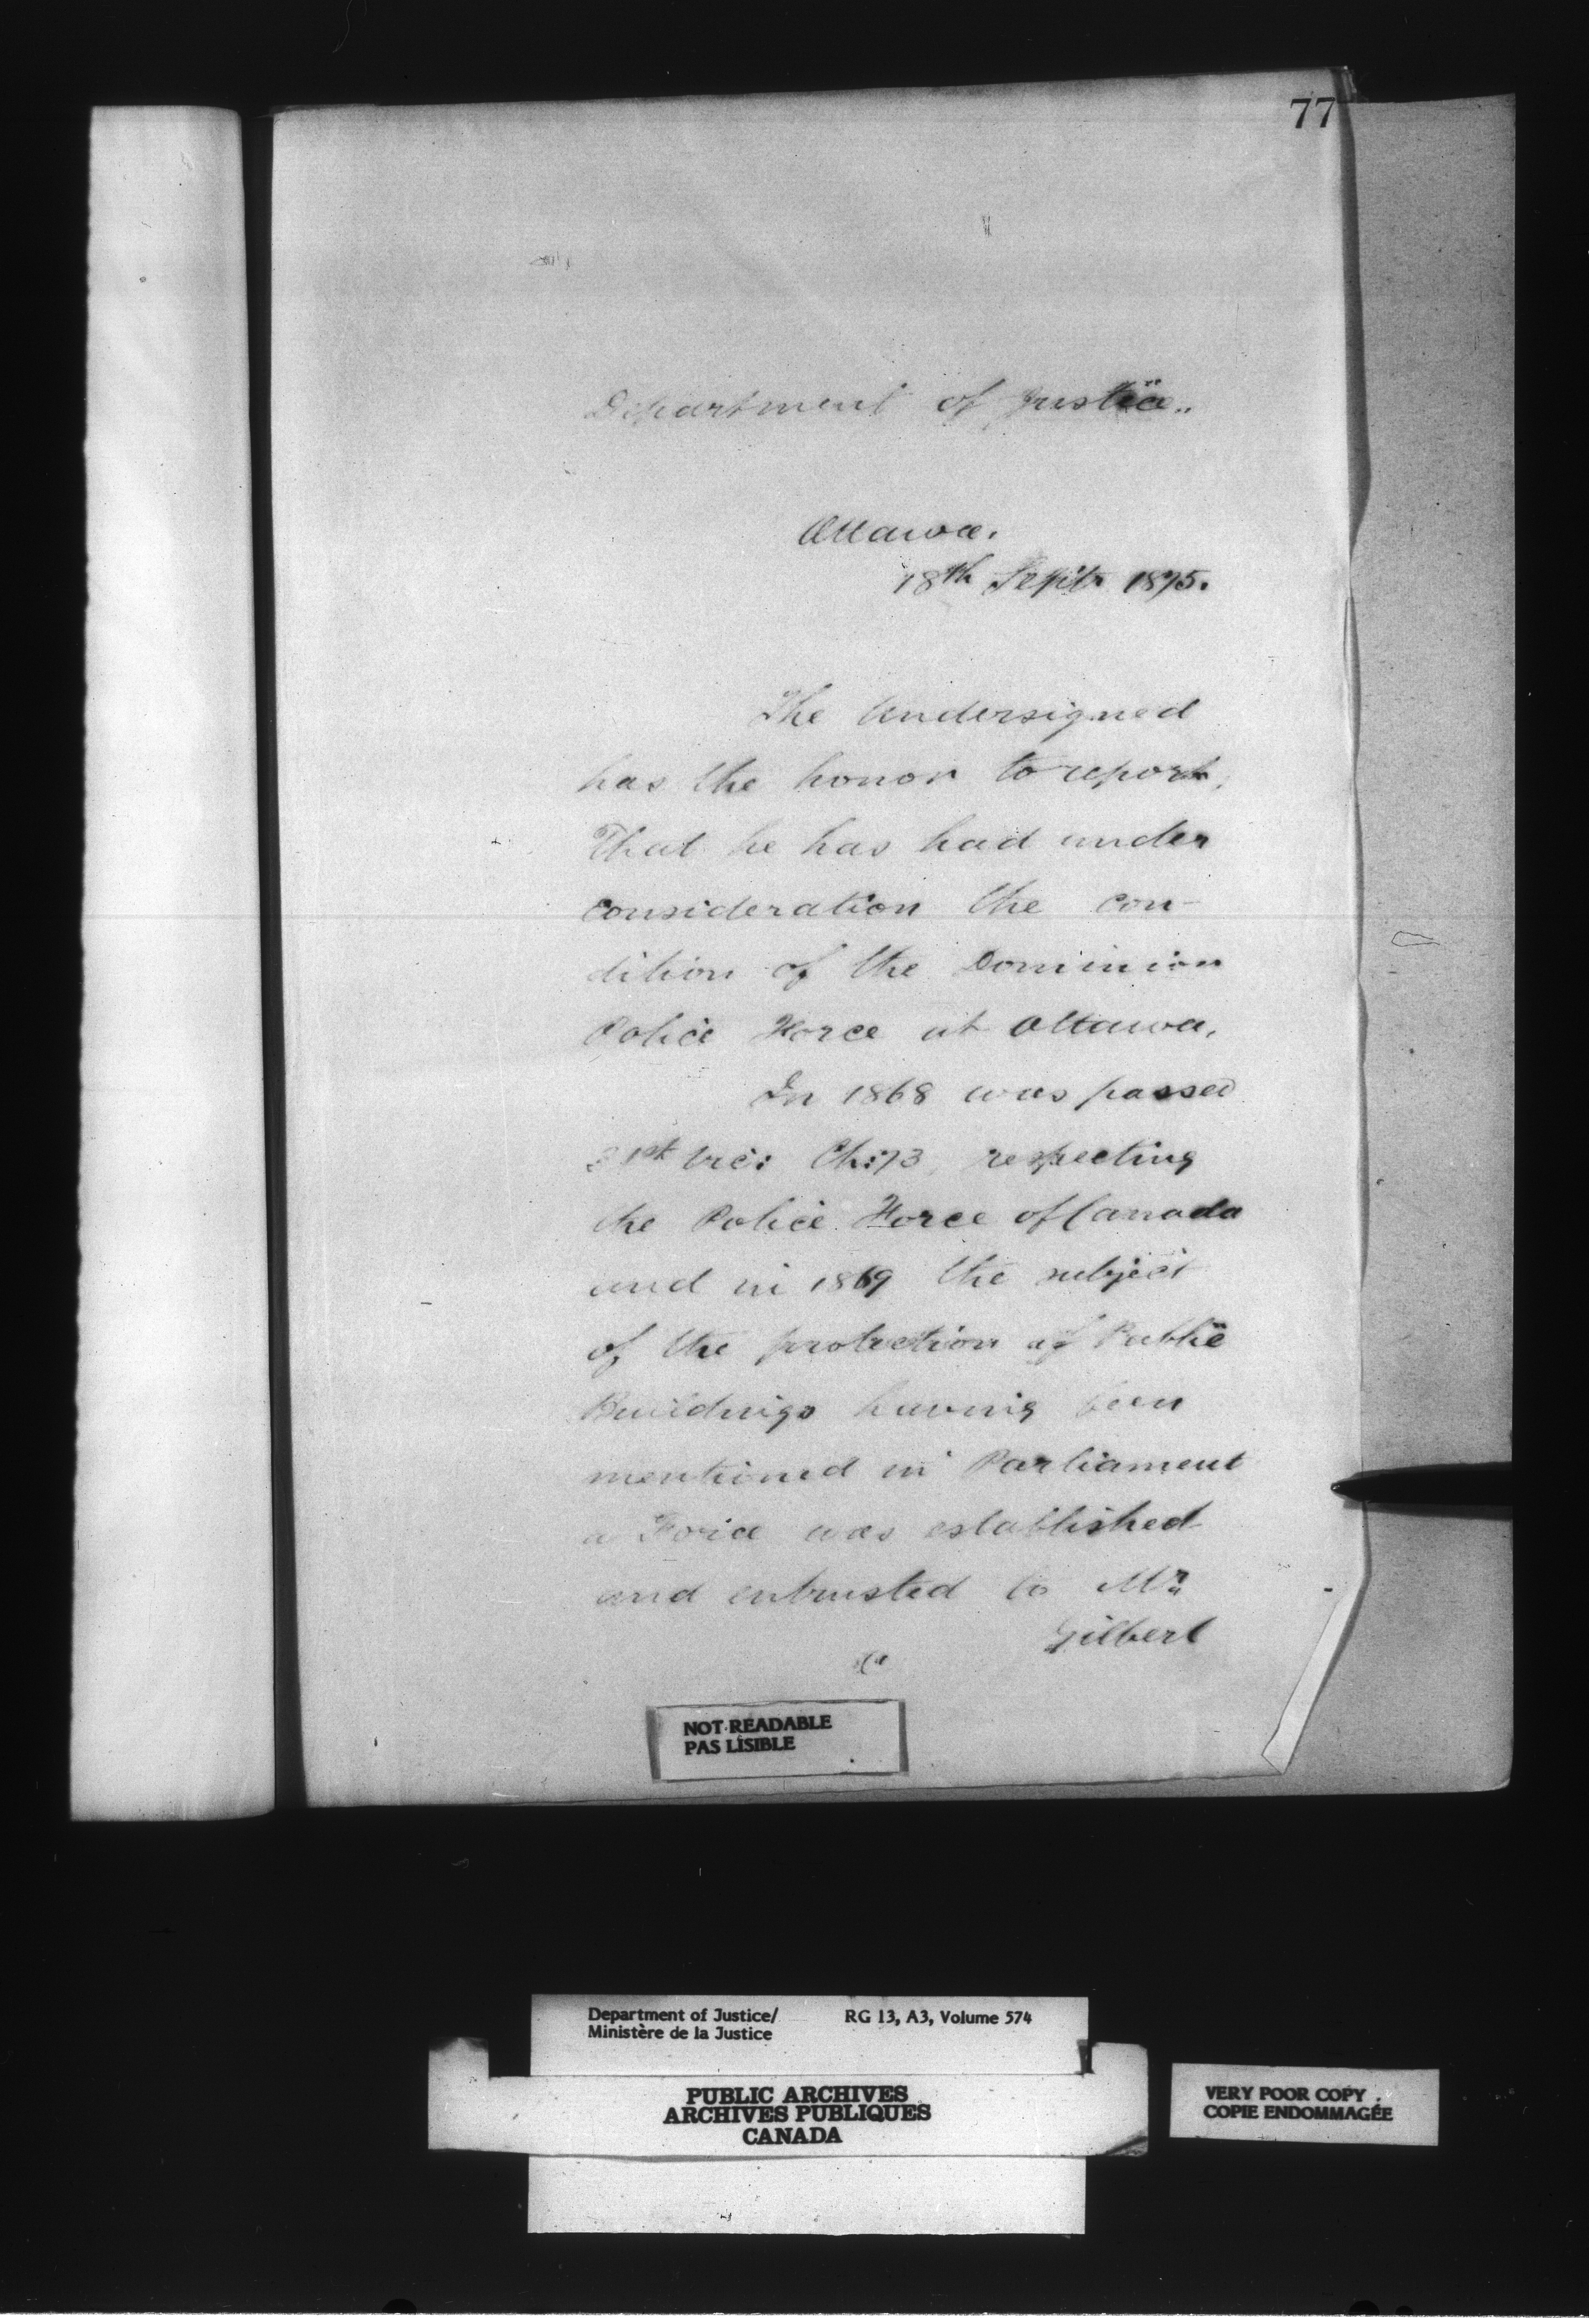 77
Department of Justice..
Ottawa.
18th Septr 1875.
The Undersigned
has the honor to report,
That he has had under
consideration the con-
dition of the Dominion
Police Force at Ottawa.
In 1868 was passed
31st Vic: Ch: 73, respecting
the Police Force of Canada
and in 1869 the subject
of the protection of Public
Buildings having been
mentioned in Parliament
a Force was established
and entrusted to Mr
Gilbert
NOT READABLE
PAS LISIBLE
Department of Justice/ RG 13, A3, Volume 574
Ministère de la Justice
PUBLIC ARCHIVES
ARCHIVES PUBLIQUES
CANADA
VERY POOR COPY
COPIE ENDOMMAGÉE